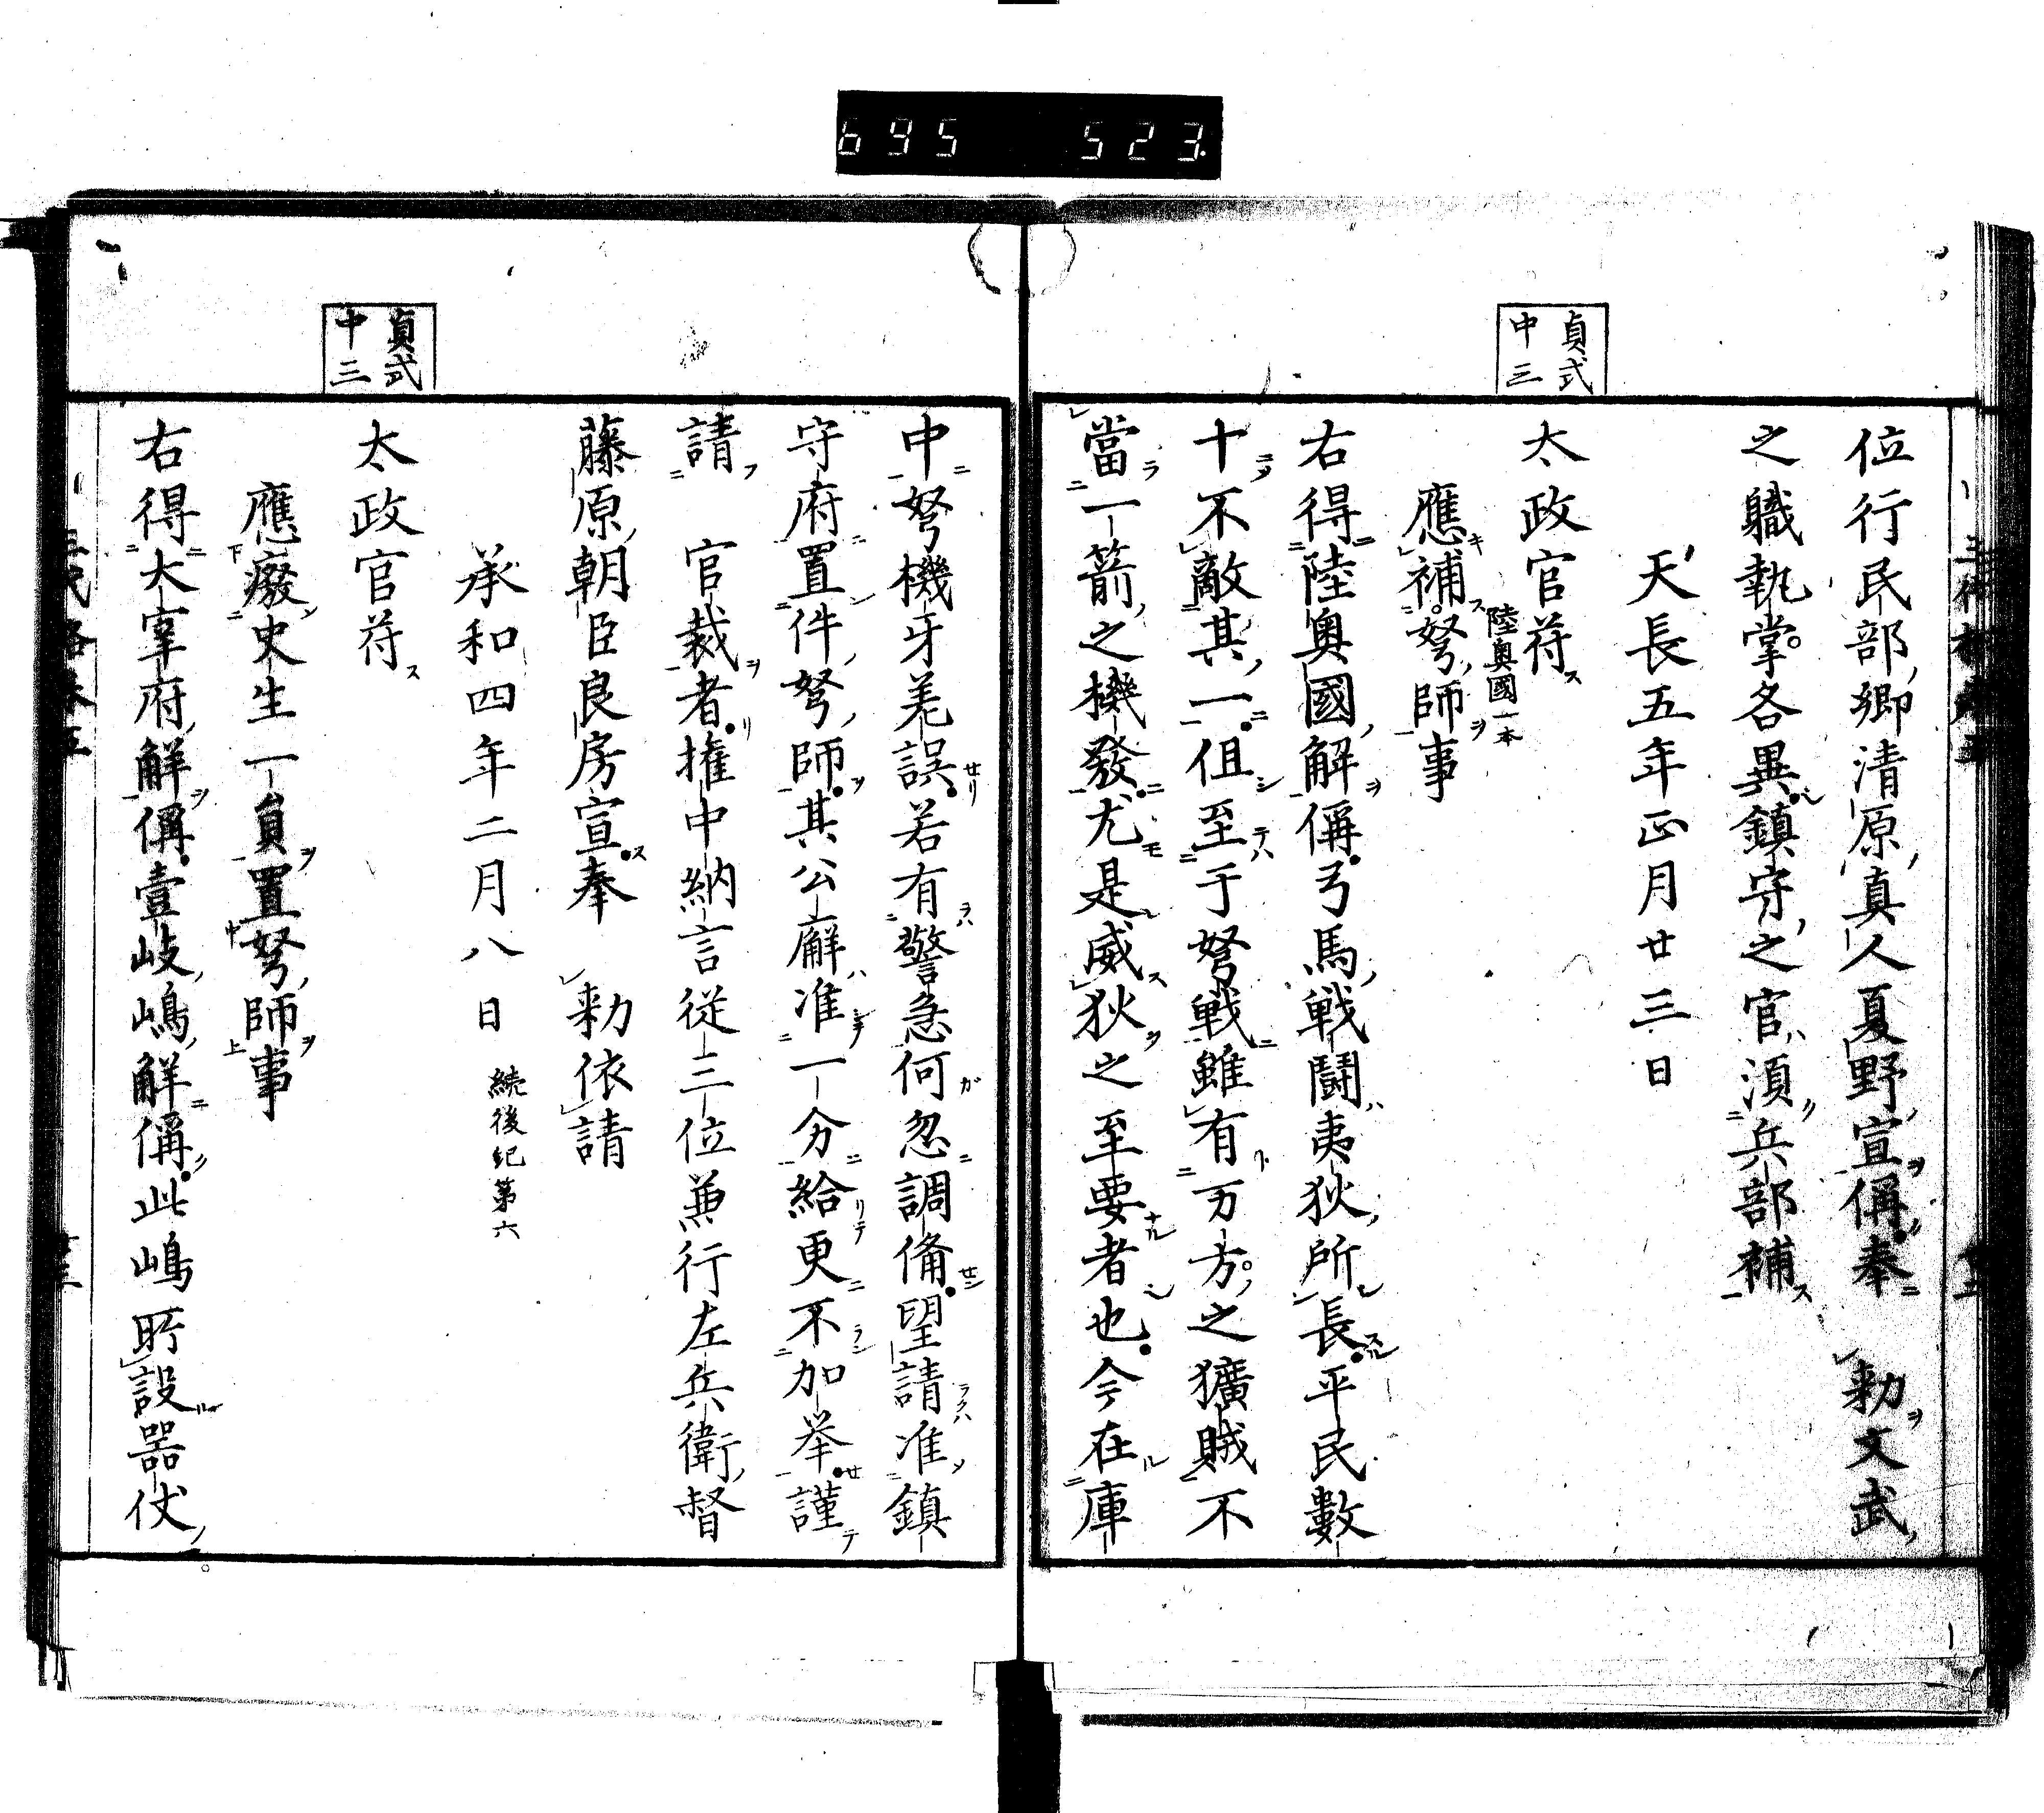 695 523
貞式
中三
位行民部卿清原真人夏野宣偁奉 勅文武
之職執掌各異鎮守之官湏兵部補
天長五年正月廿三日
太政官苻
應補弩師事
陸奥國一本
右得陸奥國解偁弓馬戦闘夷狄所長平民數
十不敵其一但至于弩戦雖有万方之獷賊不
當一箭之機發尤是威狄之至要者也今在庫
中弩機牙差誤若有警急何忽調備望請准鎮
守府置件弩師其公廨准一分給更不加举謹
請 官裁者權中納言従三位兼行左兵衛督
藤原朝臣良房宣奉 勅依請
承和四年二月八日
続後紀第六
貞式
中三
太政官苻
應癈史生一貟置弩師事
右得大宰府解偁壹岐嶋解偁此嶋所設器仗